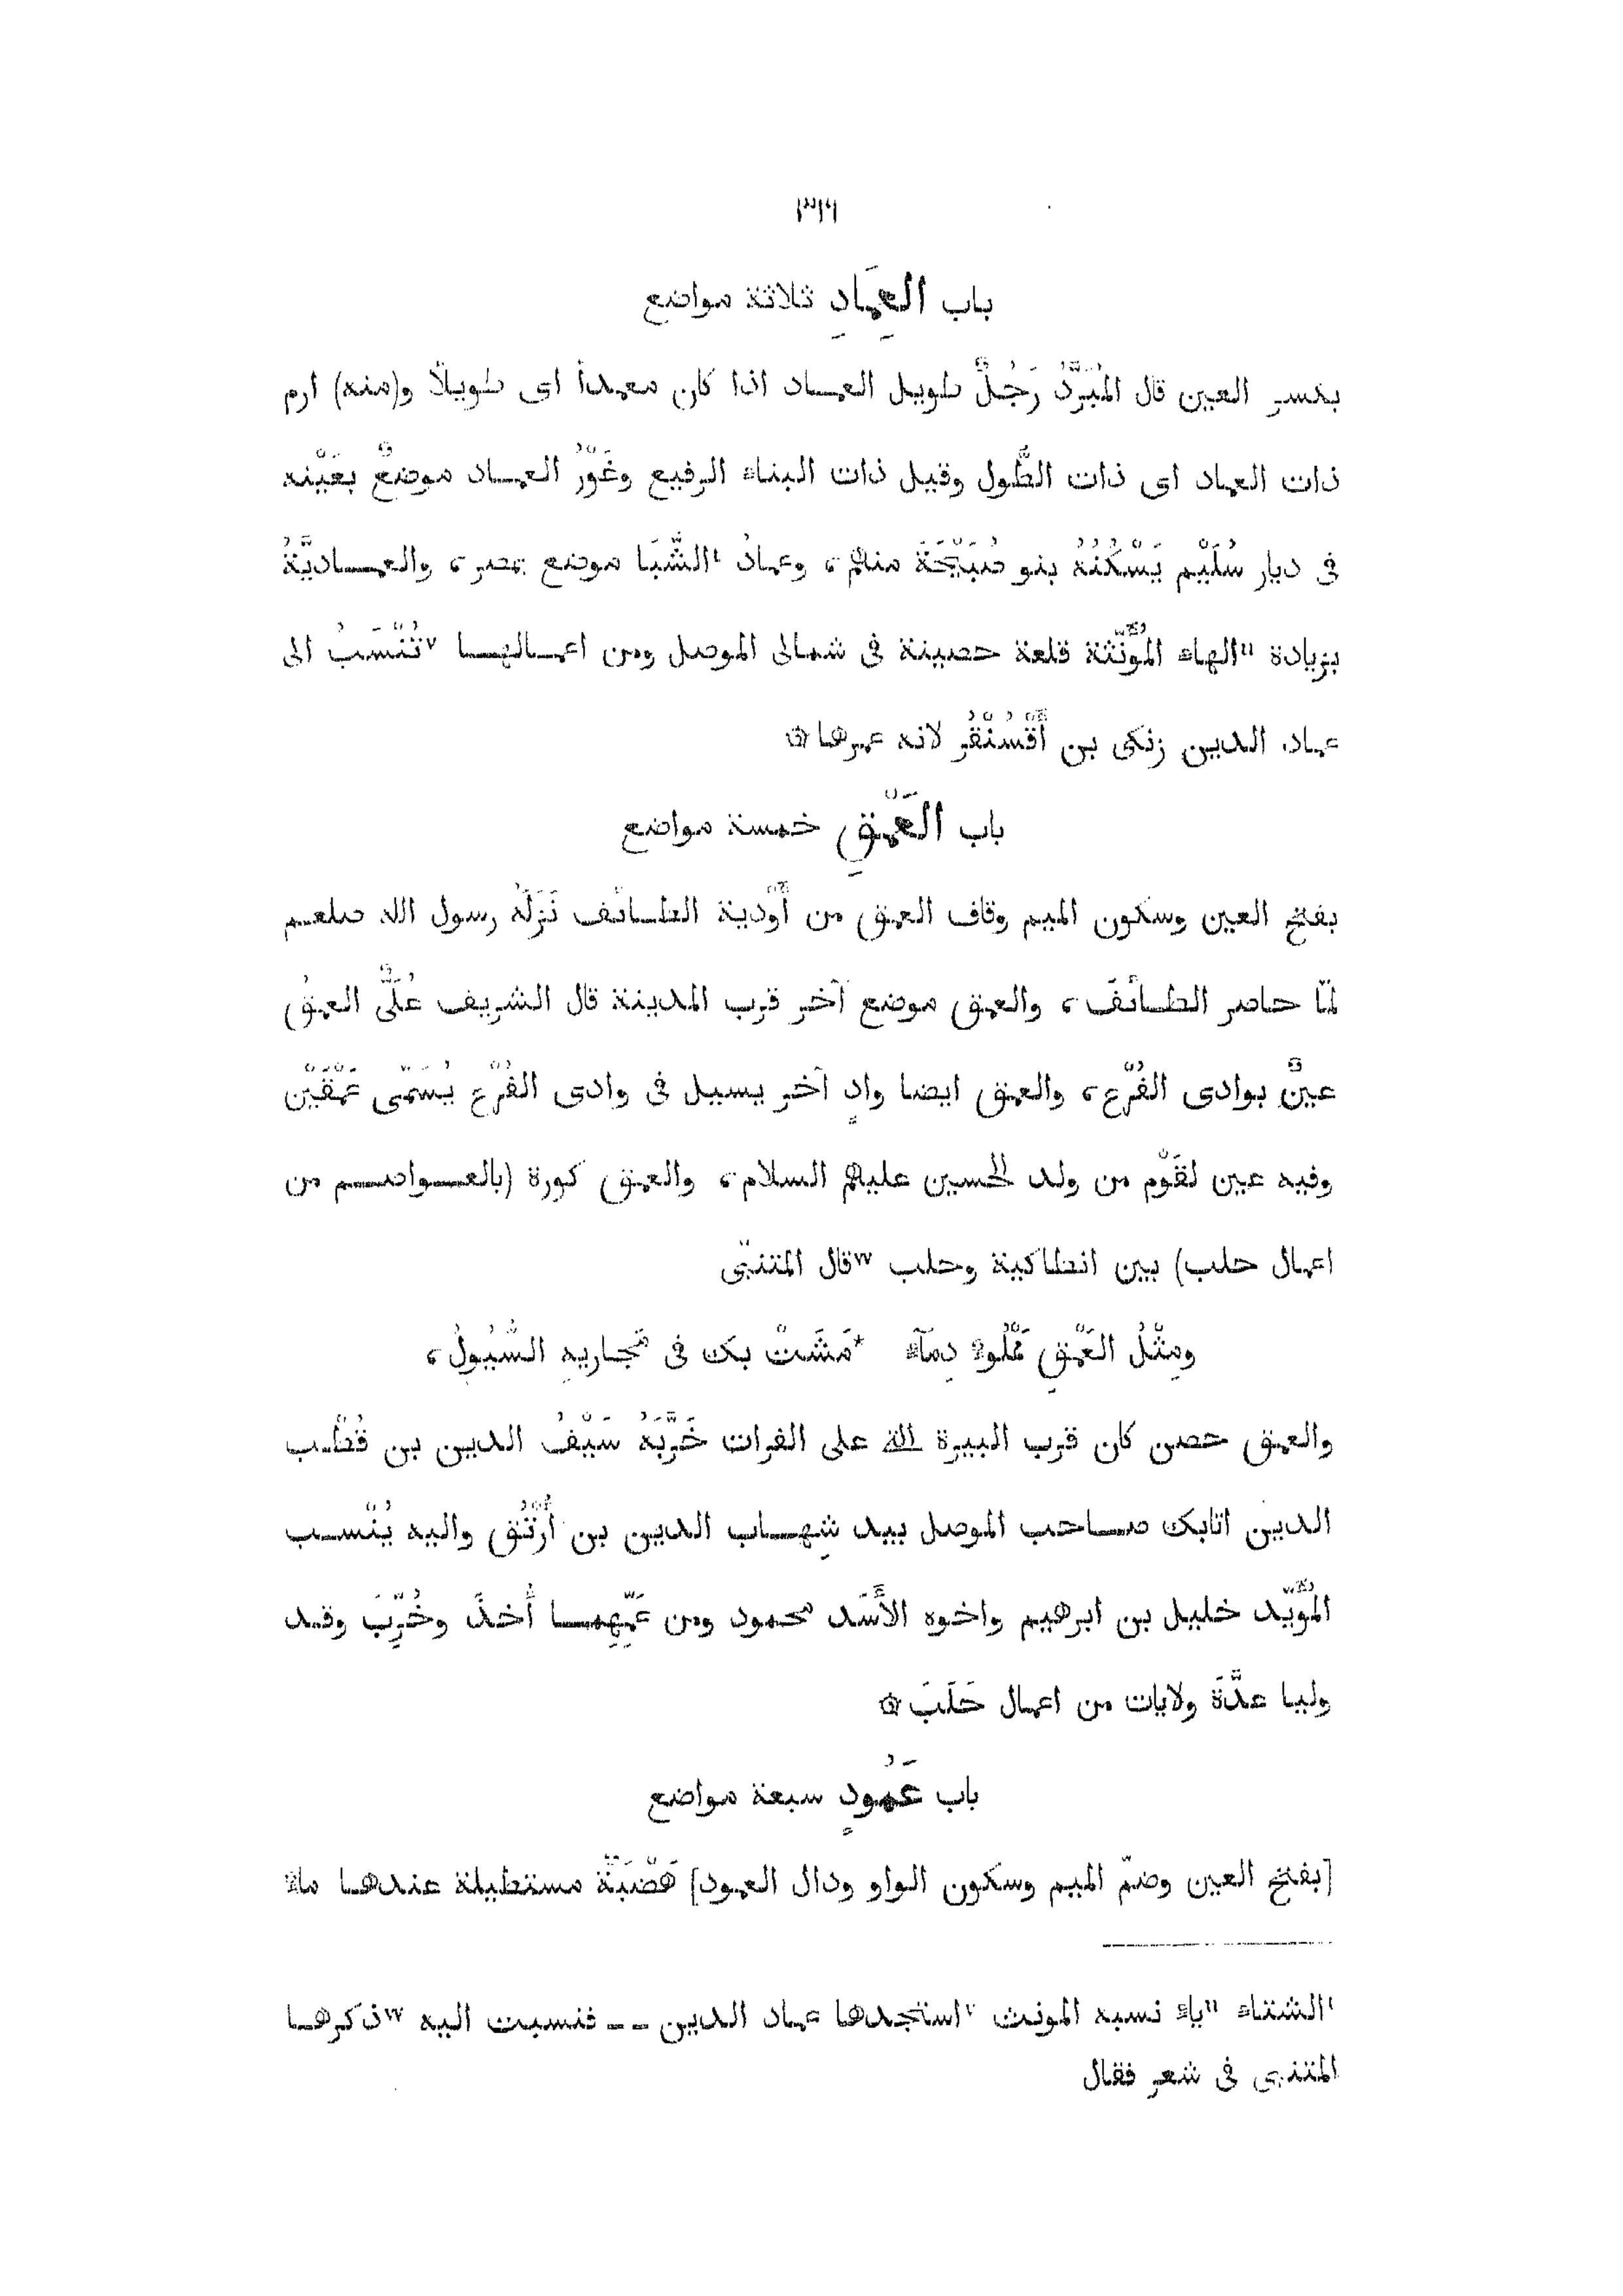 ٣١٦
باب العِمَادِ ثلاثة مواضع
بكسر العين قال المُبَرَّدُ رَجُلٌ طويل العماد اذا كان معمدأ اى طويلًا و(منه) ارم
ذات العماد اى ذات الطُّول وقيل ذات البناء الرفيع وغَوْرُ العماد موضعٌ بعَيْنه
فى ديار سُلَيْم يَسْكُنُهُ بنو صُبَيْحَةَ منهم، وعمادُ ١الشَّبَا موضع بمصر، والعماديَّةُ
بزيادة ١١الهاء المُؤَنَّثة قلعة حصينة فى شمالى الموصل ومن اعمالها ٧تُنْسَبُ الى
عماد الدين زنكى بن أَقْسُنْقُر لانه عمرها ۞
باب العَمْقِ خمسة مواضع
بفتح العين وسكون الميم وقاف العمق من أَوْدية الطائف نَزَلَهُ رسول الله صلعم
لمّا حاصر الطائفَ، والعمق موضع آخر قرب المدينة قال الشريف عُلَىٌّ العمقُ
عينٌ بوادى الفُرْع، والعمق ايضا وادٍ آخر يسيل فى وادى الفُرْع يُسَمَّى عَمْقَيْن
وفيه عين لقَوْم من ولد الحسين عليهم السلام، والعمق كورة (بالعواصم من
اعمال حلب) بين انطاكية وحلب ٧٧قال المتنبّى
ومِثْلُ العَمْقِ مَمْلُوءٌ دِمَآءً *مَشَتْ بك فى مَجاريهِ السُّيُولُ،
والعمق حصن كان قرب البيرة التى على الفرات خَرَّبَهُ سَيْفُ الدين بن قُطْب
الدين اتابك صاحب الموصل بيد شِهاب الدين بن أُرْتُق واليه يُنْسب
المُؤَيَّد خليل بن ابرهيم واخوه الأَسَد محمود ومن عَمِّهِما أُخذَ وخُرِّبَ وقد
وليا عدَّةَ ولايات من اعمال حَلَبَ ۞
باب عَمُودٍ سبعة مواضع
[بفتح العين وضمّ الميم وسكون الواو ودال العمود] هَضْبَةٌ مستطيلة عندها ماءٌ
١الشتاء ١١ياء نسبه المونث ٧استجدها عماد الدين -- فنسبت اليه ٧٧ذكرها
المتنبى فى شعر فقال